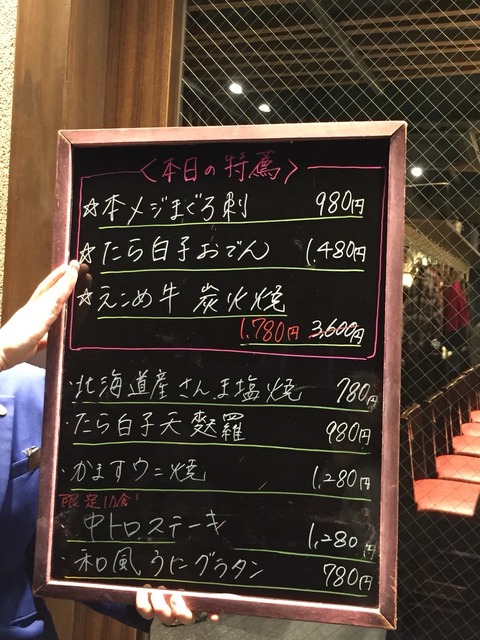 〈本日の特薦〉
☆本メジまぐろ刺 980円
☆たら白子おでん 1,480円
☆えこめ牛 炭火焼
1,780円 3,600円
・北海道産さんま塩焼 780円
・たら白子天麩羅 980円
・かますウニ焼 1,280円
限定10食!
・中トロステーキ 1,280円
・和風うにグラタン 780円